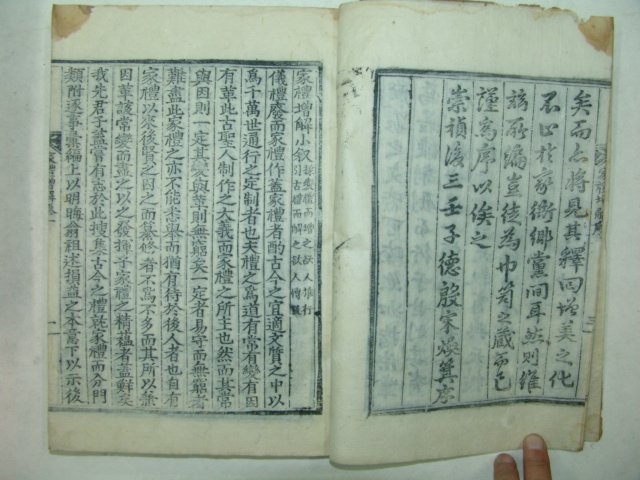 矣而亦將見其釋回增美之化
不止於家衙鄉黨間耳然則維
玆所編豈徒為巾笥之藏而已
謹為序以俟之
崇禎後三壬子德殷宋煥箕序
家禮增解小敘
儀禮廢而家禮作蓋家禮者酌古今之宜適文質之中以
爲千萬世通行之定制者也夫禮之爲道有常有變有因
有革此古聖人制作之大義而家禮之所主也然而其常
與因則一定其變與革則無窮矣一定者易守而無窮者
難盡此家禮之亦不能悉舉而猶有待於後人者也自有
家禮以來後賢之因之而纂修者不爲不多而其所以兼
因革該常變而爲之發揮子家禮之精蘊者蓋鮮矣
我先君子蓋嘗有志於此搜集古今之禮就家禮而分門
類附逐事彙編上以明晦翁祖述損益之本意下以示後